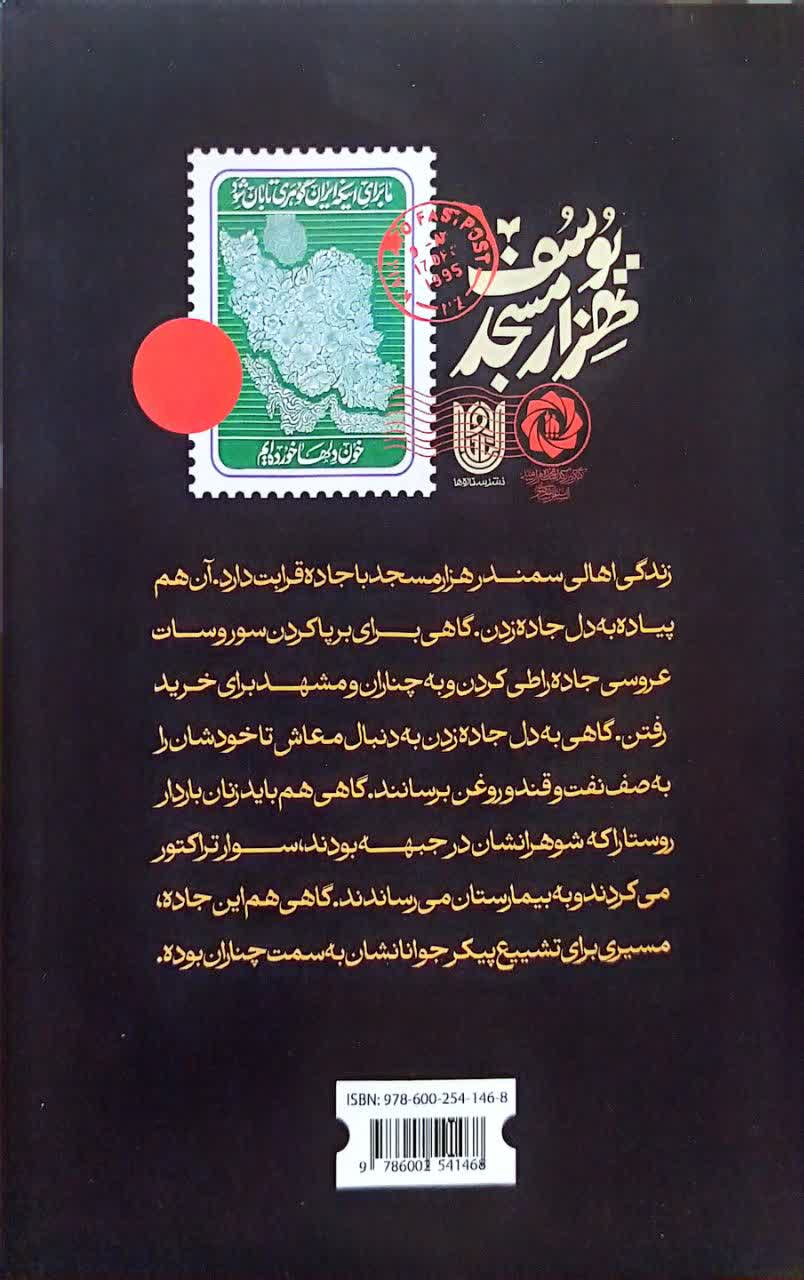 ما برای اینکه ایران گوهری تابان شود
خون دلها خورده ایم
FAST POST
1995
یوسف
هزار مسجد
نشر ستاره‌ها
زندگی اهالی سمندر هزار مسجد با جاده قرابت دارد. آن هم
پیاده به دل جاده زدن. گاهی برای برپا کردن سور و سات
عروسی جاده را طی کردن و به چناران و مشهد برای خرید
رفتن. گاهی به دل جاده زدن به دنبال معاش تا خودشان را
به صف نفت و قند و روغن برسانند. گاهی هم باید زنان باردار
روستا را که شوهرانشان در جبهه بودند، سوار تراکتور
می کردند و به بیمارستان می رساندند. گاهی هم این جاده،
مسیری برای تشییع پیکر جوانانشان به سمت چناران بوده.
ISBN: 978-600-254-146-8
9 786002 541468